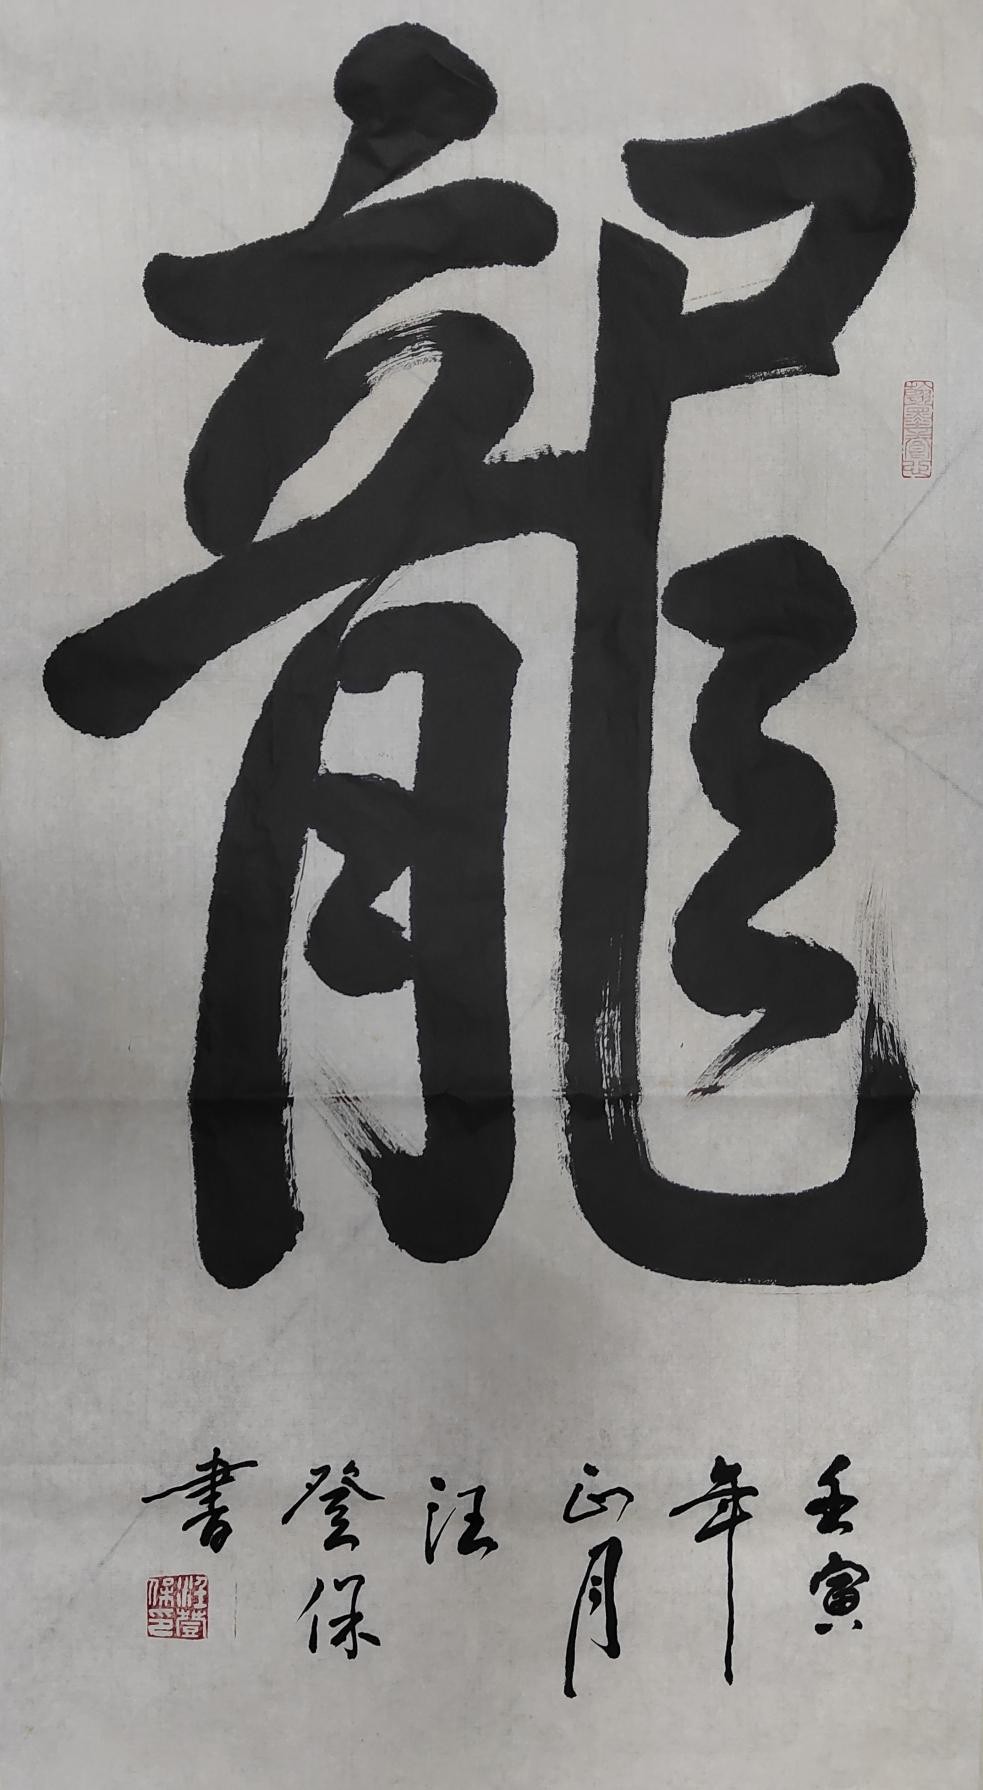 龍
壬寅
年
正月
汪
登保
書
汪登保印